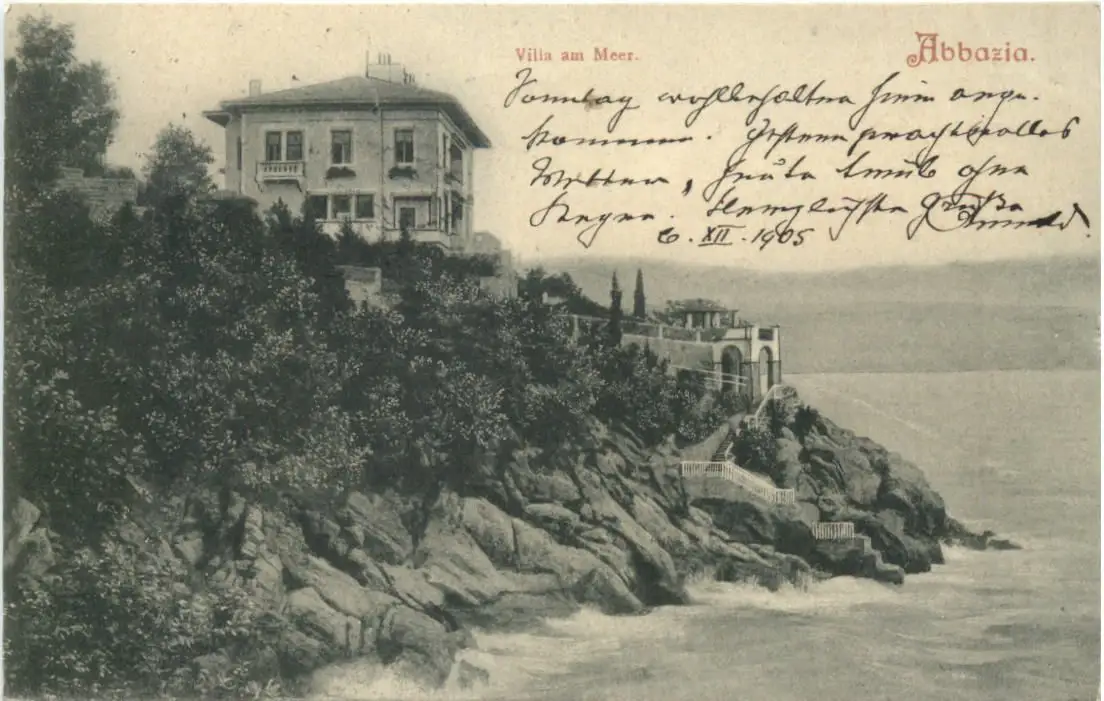 Villa am Meer.
Abbazia.
Sonntag wohlbehalten hier ange-
kommen. Gestern prachtvolles
Wetter, heute trüb ohne
Regen. Herzlichste Grüße
6.XII.1905